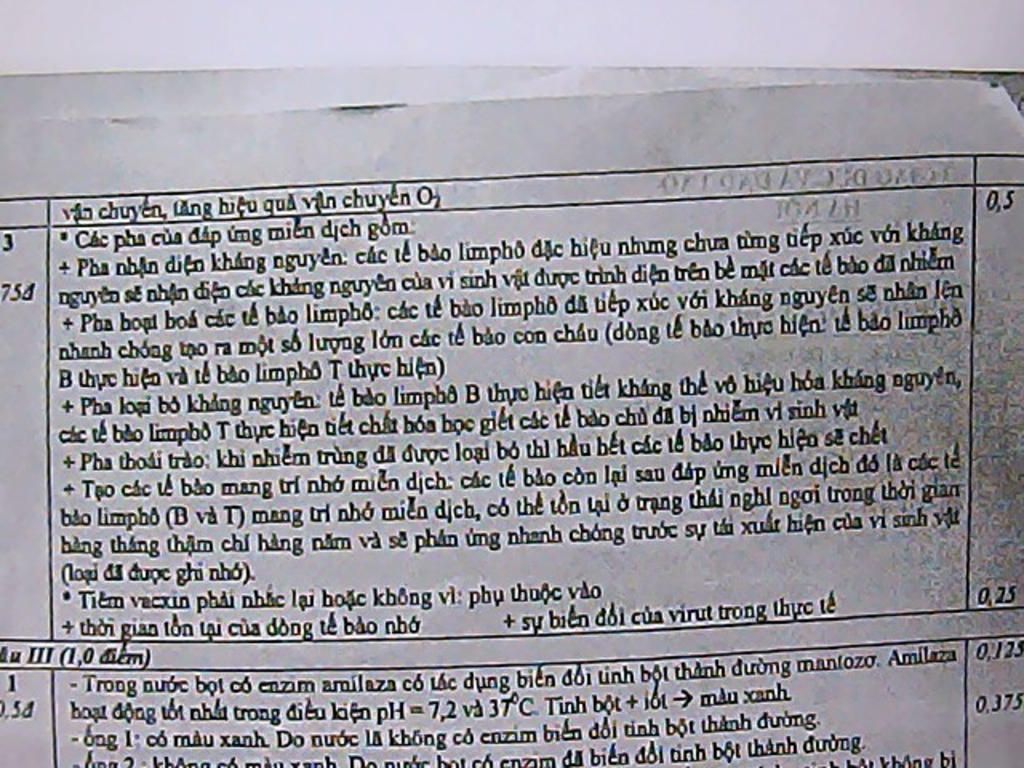 vận chuyển, tăng hiệu quả vận chuyển O2
0,5
3
* Các pha của đáp ứng miễn dịch gồm:
+ Pha nhận diện kháng nguyên: các tế bào limphô đặc hiệu nhưng chưa từng tiếp xúc với kháng
75đ
nguyên sẽ nhận diện các kháng nguyên của vi sinh vật được trình diện trên bề mặt các tế bào đã nhiễm
+ Pha hoạt hoá các tế bào limphô: các tế bào limphô đã tiếp xúc với kháng nguyên sẽ nhân lên
nhanh chóng tạo ra một số lượng lớn các tế bào con cháu (dòng tế bào thực hiện: tế bào limphô
B thực hiện và tế bào limphô T thực hiện)
+ Pha loại bỏ kháng nguyên: tế bào limphô B thực hiện tiết kháng thể vô hiệu hóa kháng nguyên,
các tế bào limphô T thực hiện tiết chất hóa học giết các tế bào chủ đã bị nhiễm vi sinh vật
+ Pha thoái trào: khi nhiễm trùng đã được loại bỏ thì hầu hết các tế bào thực hiện sẽ chết
+ Tạo các tế bào mang trí nhớ miễn dịch: các tế bào còn lại sau đáp ứng miễn dịch đó là các tế
bào limphô (B và T) mang trí nhớ miễn dịch, có thể tồn tại ở trạng thái nghỉ ngơi trong thời gian
hàng tháng thậm chí hàng năm và sẽ phản ứng nhanh chóng trước sự tái xuất hiện của vi sinh vật
(loại đã được ghi nhớ).
* Tiêm vacxin phải nhắc lại hoặc không vì: phụ thuộc vào
0,25
+ thời gian tồn tại của dòng tế bào nhớ + sự biến đổi của virut trong thực tế
âu III (1,0 điểm)
0,125
1
- Trong nước bọt có enzim amilaza có tác dụng biến đổi tinh bột thành đường mantozơ. Amilaza
0,5đ
hoạt động tốt nhất trong điều kiện pH = 7,2 và 37°C. Tinh bột + iốt → màu xanh.
0,375
- ống 1: có màu xanh. Do nước lã không có enzim biến đổi tinh bột thành đường.
- ống 2: không có màu xanh. Do nước bọt có enzim đã biến đổi tinh bột thành đường.
tinh bột không bị